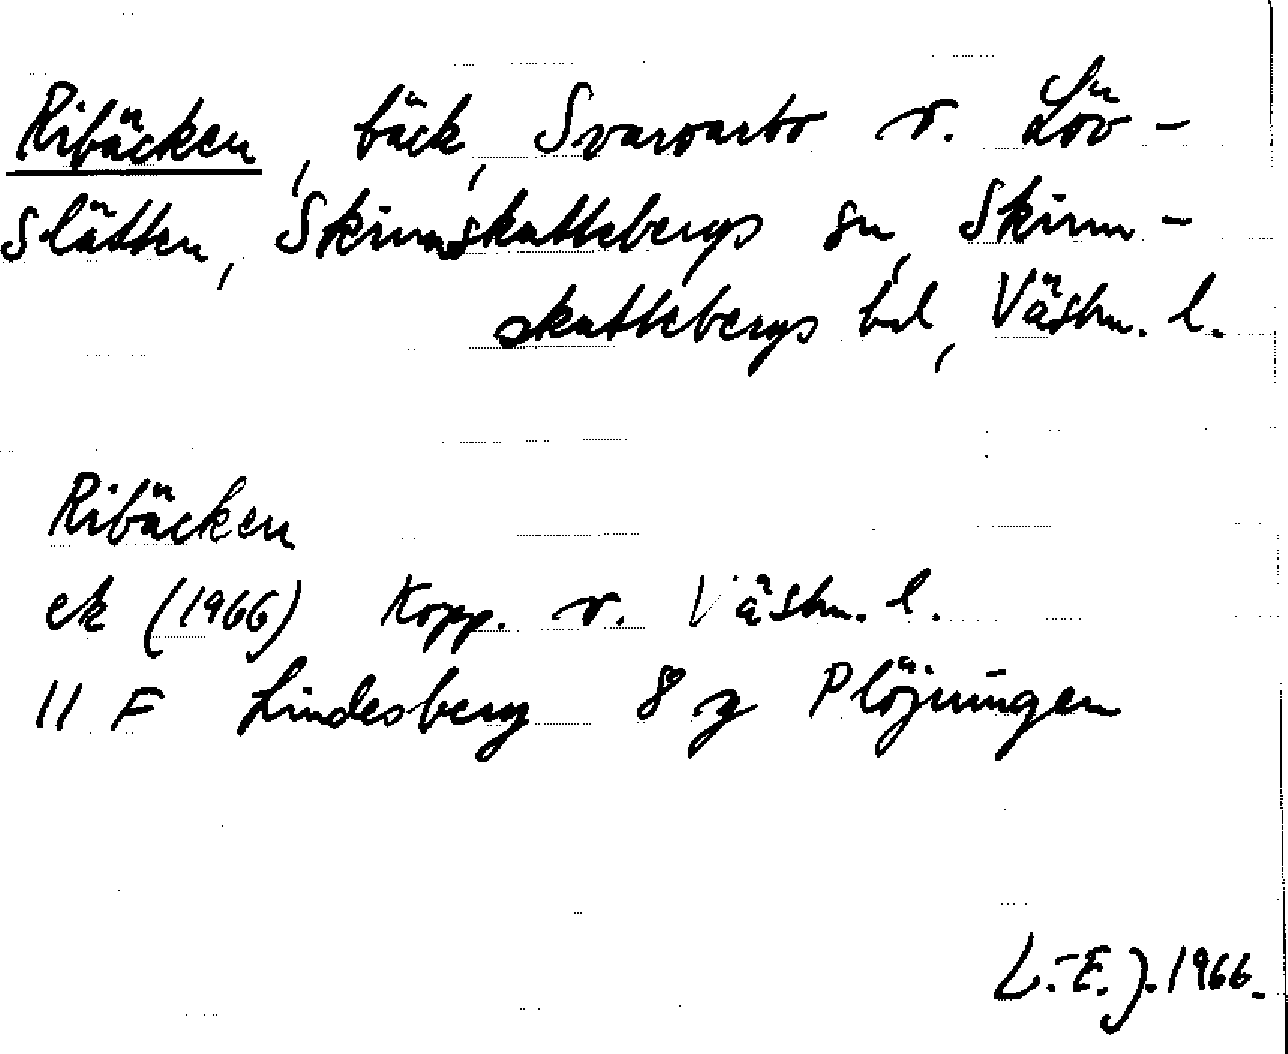 Ribäcken, bäck, Svarvarbo o. Löv-
slätten, Skinnskattebergs sn, Skinn-
skattebergs hd, Västm. l.
Ribäcken
ek (1966) Kopp. o. Västm. l.
11 F Lindesberg 8 g Plöjningen
L.-E. J. 1966.